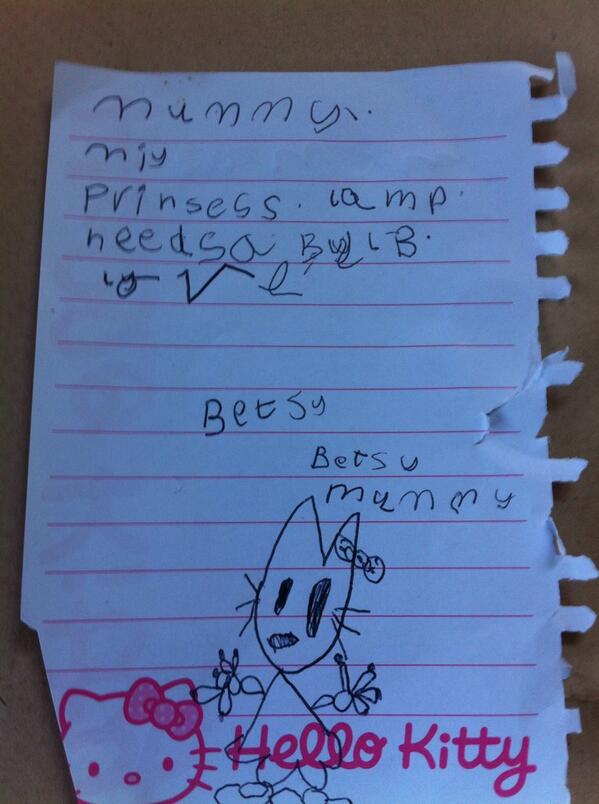 mummy.
my
prinsess. lamp.
needs a BulB.
Betsy
Betsy
mummy
Hello Kitty